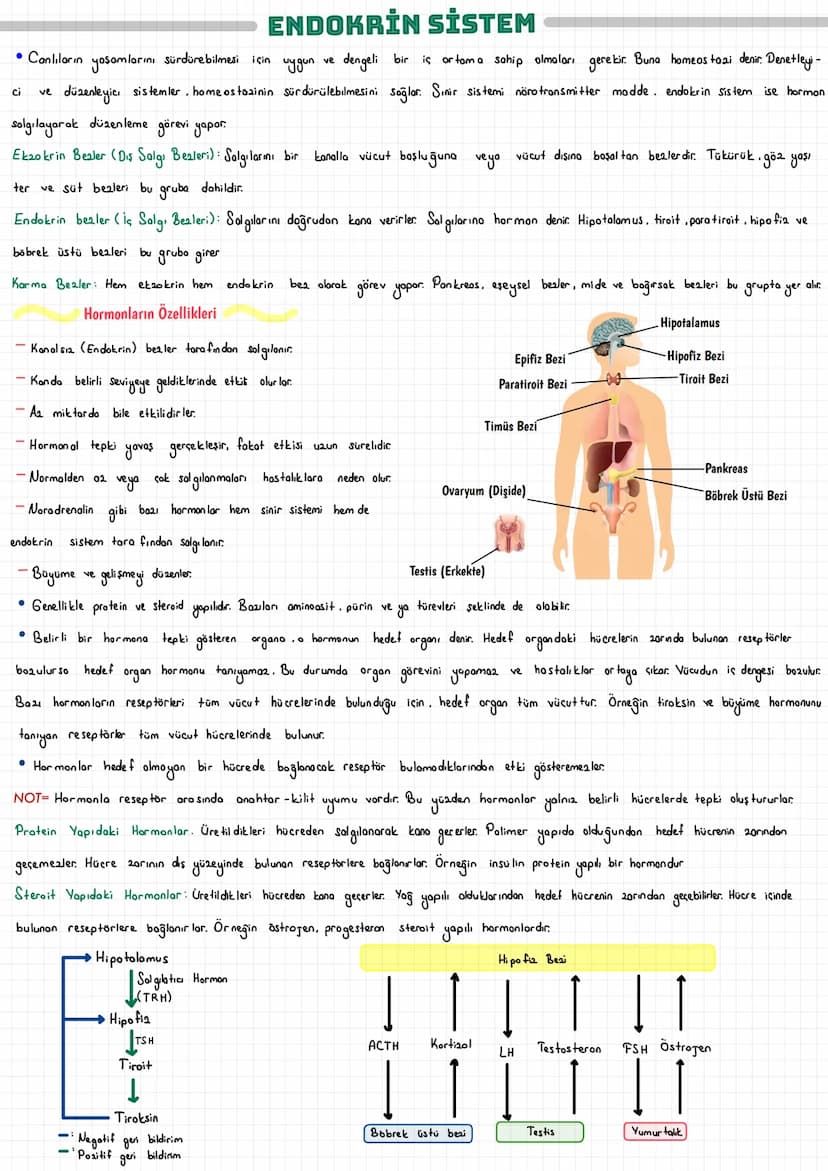 ENDOKRİN SİSTEM
• Canlıların yaşamlarını sürdürebilmesi için uygun ve dengeli bir iç ortama sahip olmaları gerekir. Buna homeostazi denir. Denetleyi-
ci ve düzenleyici sistemler, homeostazinin sürdürülebilmesini sağlar. Sinir sistemi nörotransmitter madde, endokrin sistem ise hormon
salgılayarak düzenleme görevi yapar.
Ekzokrin Bezler (Dış Salgı Bezleri): Salgılarını bir kanalla vücut boşluğuna veya vücut dışına boşaltan bezlerdir. Tükürük, göz yaşı
ter ve süt bezleri bu gruba dahildir.
Endokrin bezler (İç Salgı Bezleri): Salgılarını doğrudan kana verirler. Salgılarına hormon denir. Hipotalamus, tiroit, paratiroit, hipofiz ve
böbrek üstü bezleri bu gruba girer
Karma Bezler: Hem ekzokrin hem endokrin bez olarak görev yapar. Pankreas, eşeysel bezler, mide ve bağırsak bezleri bu grupta yer alır.
Hormonların Özellikleri
— Kanalsız (Endokrin) bezler tarafından salgılanır.
— Kanda belirli seviyeye geldiklerinde etkili olurlar.
— Az miktarda bile etkilidirler.
— Hormonal tepki yavaş gerçekleşir, fakat etkisi uzun sürelidir
— Normalden az veya çok salgılanmaları hastalıklara neden olur.
— Noradrenalin gibi bazı hormonlar hem sinir sistemi hem de
endokrin sistem tarafından salgılanır.
— Büyüme ve gelişmeyi düzenler.
Hipotalamus
Epifiz Bezi
Hipofiz Bezi
Paratiroit Bezi
Tiroit Bezi
Timüs Bezi
Pankreas
Ovaryum (Dişide)
Böbrek Üstü Bezi
Testis (Erkekte)
• Genellikle protein ve steroid yapılıdır. Bazıları aminoasit, pürin ve ya türevleri şeklinde de olabilir.
• Belirli bir hormona tepki gösteren organa, o hormonun hedef organı denir. Hedef organdaki hücrelerin zarında bulunan reseptörler
bozulursa hedef organ hormonu tanıyamaz. Bu durumda organ görevini yapamaz ve hastalıklar ortaya çıkar. Vücudun iç dengesi bozulur.
Bazı hormonların reseptörleri tüm vücut hücrelerinde bulunduğu için, hedef organ tüm vücuttur. Örneğin tiroksin ve büyüme hormonunu
tanıyan reseptörler tüm vücut hücrelerinde bulunur.
• Hormonlar hedef olmayan bir hücrede bağlanacak reseptör bulamadıklarından etki gösteremezler.
NOT= Hormonla reseptör arasında anahtar-kilit uyumu vardır. Bu yüzden hormonlar yalnız belirli hücrelerde tepki oluştururlar.
Protein Yapıdaki Hormonlar: Üretildikleri hücreden salgılanarak kana geçerler. Polimer yapıda olduğundan hedef hücrenin zarından
geçemezler. Hücre zarının dış yüzeyinde bulunan reseptörlere bağlanırlar. Örneğin insülin protein yapılı bir hormondur
Steroit Yapıdaki Hormonlar: Üretildikleri hücreden kana geçerler. Yağ yapılı olduklarından hedef hücrenin zarından geçebilirler. Hücre içinde
bulunan reseptörlere bağlanırlar. Örneğin östrojen, progesteron steroit yapılı hormonlardır.
Hipotalamus
Salgılatıcı Hormon
(TRH)
Hipofiz
TSH
Tiroit
Tiroksin
—: Negatif geri bildirim
—: Pozitif geri bildirim
Hipofiz Bezi
ACTH Kortizol LH Testosteron FSH Östrojen
Böbrek üstü bezi Testis Yumurtalık